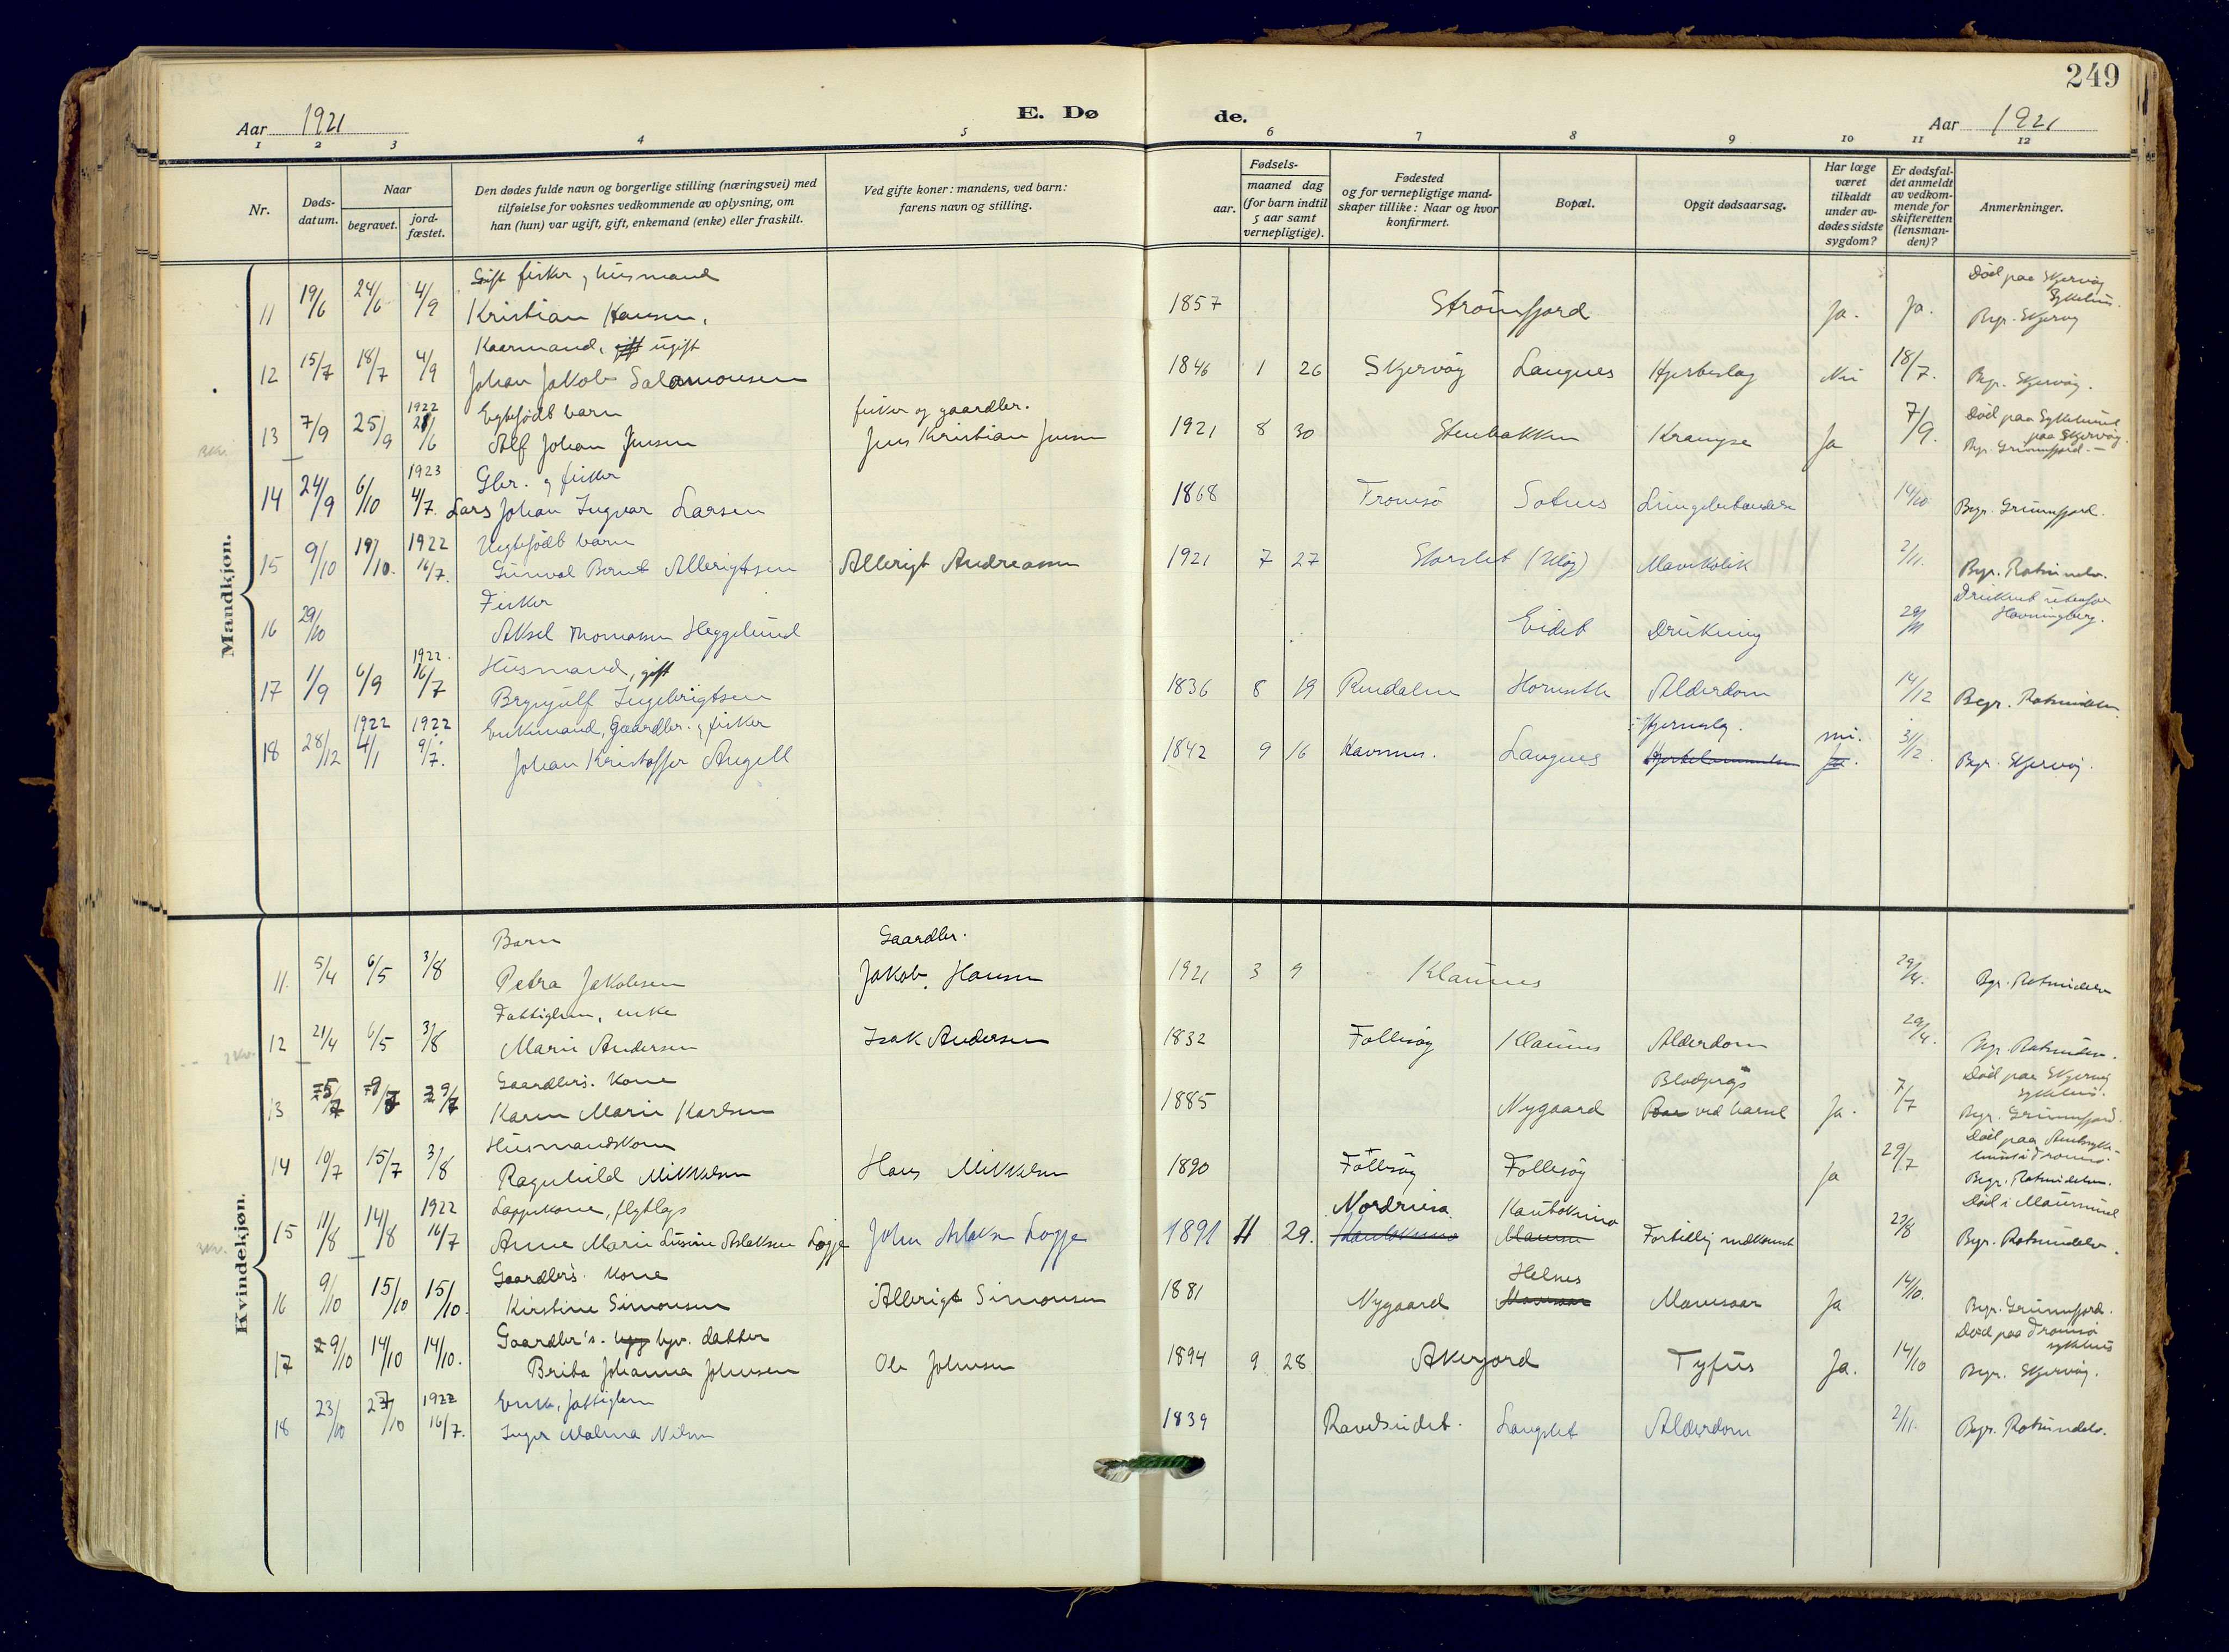 249
Aar 1921
E. Dø
de.
Aar 1921
1 2 3 4 5 6 7 8 9 10 11 12
Nr.
Døds-
datum.
Naar
begravet.
jord-
fæstet.
Den dødes fulde navn og borgerlige stilling (næringsvei) med
tilføielse for voksnes vedkommende av oplysning, om
han (hun) var ugift, gift, enkemand (enke) eller fraskilt.
Ved gifte koner: mandens, ved barn:
farens navn og stilling.
Fødsels-
aar.
maaned dag
(for barn indtil
5 aar samt
vernepligtige).
Fødested
og for vernepligtige mand-
skaper tillike: Naar og hvor
konfirmert.
Bopæl.
Opgit dødsaarsag.
Har læge
været
tilkaldt
under av-
dødes sidste
sygdom?
Er dødsfal-
det anmeldt
av vedkom-
mende for
skifteretten
(lensman-
den)?
Anmerkninger.
Mandkjøn.
Gift fisker, husmand Død paa Skjervøy
Sykehus.
11 19/6 24/6 4/9 Kristian Hansen. 1857 Straumfjord Ja. Ja. Begr. Skjervøy
Kaarmand, gift ugift
12 15/7 18/7 4/9 Johan Jakob Salamonsen 1846 1 26 Skjervøy Laugnes Hjerteslag Nei 18/7. Begr. Skjervøy.
1922 Egtefødt barn fisker og gaardbr. Død paa Sykehuset
paa Skjervøy.
13 7/9 25/9 21/6 Alf Johan Jensen Jens Kristian Jensen 1921 8 30 Stenbakken Krampe Ja 7/9. Begr. Grunnfjord.
1923 Gbr. og fisker
14 24/9 6/10 4/7. Lars Johan Ingvar Larsen 1868 Tromsø Sotnes 14/10 Begr. Grunnfjord.
1922 Uegtefødt barn
15 9/10 19/10. 16/7. Gunval Bernt Allerigtsen Allerigt Andreassen 1921 7 27 Storslet (Uløy) Mavekolik 2/11. Begr. Rotsundelv.
Fisker Druknet utenfor
Havningberg.
16 29/10 Aksel Thomassen Heggelund Eidet Drukning 29/11
1922. Husmand, gift
17 1/9 6/9 16/7 Brynjulf Ingebrigtsen 1836 8 19 Rendalen Hornseth Alderdom 14/12 Begr. Rotsundelv
1922 1922 Enkemand, Gaardbr. og fisker Hjerneslag. nei.
18 28/12 4/1 9/7. Johan Kristoffer Angell 1842 9 16 Havnnes. Laugnes Ja. 31/12. Begr. Skjervøy.
Kvindekjøn.
Barn Gaardbr.
11. 5/4 6/5 3/8 Petra Jakobsen Jakob Hansen 1921 3 9 Klaunes 29/4. Begr. Rotsundelv
Fattiglem, enke
12 21/4 6/5 3/8 Marie Andersen Isak Andersen 1832 Follesøy Klaunes Alderdom 29/4. Begr. Rotsundelv.
Gaardbr's. Kone Død paa Skjervøy
sykehus.
13 5/7 9/7 Karen Marie Karlsen 1885 Nygaard ved barsel Ja. 7/7 Begr. Grunnfjord.
Husmandskone Død paa Amtssyke-
huset i Tromsø.
14 10/7 15/7 3/8 Ragnhild Mikkelsen Hans Mikkelsen 1890 Follesøy Follesøy Ja 29/7 Begr. Rotsundelv.
1922 Lappekone, flytlap Nordreisa Kautokeino Død i Maursund
15 11/8 14/8 16/7 Anne Marie Susine Aslaksen Logje John Aslaksen Logje 1891 11 29. Kautokeino Maursund Fortidlig nedkomst 23/8 Begr. Rotsundelv.
Gaardbr's. Kone Helnes
16 9/10 15/10 15/10. Kirstine Simonsen Allerigt Simonsen 1881 Nygaard Mavesaar Mavesaar Ja 14/10. Begr. Grunnfjord.
Gaardbr's. hjv. datter Død paa Tromsø
sykehus
17 9/10 14/10 14/10. Berita Johanna Johnsen Ole Johnsen 1894 9 28 Akerjord Tyfus Ja. 14/10 Begr. Skjervøy.
1922 Enke, fattiglem
18 23/10 27/10 16/7. Inger Malena Nilsen 1839 Ravelseidet. Langslet Alderdom 2/11. Begr. Rotsundelv.